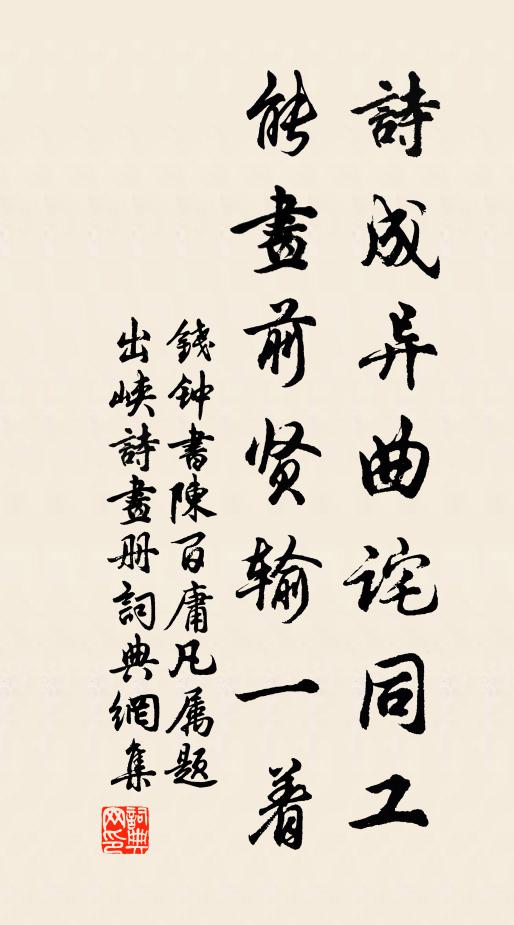 詩成异曲诧同工
能畫前贤输一着
錢钟書陳百庸凡属题
出峡詩畫册詞典網集
詞典
网印